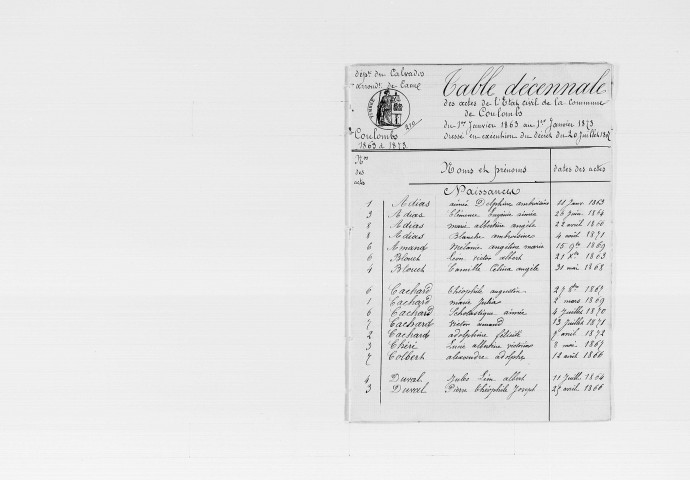 dépt du Calvados
arrondt de Caen
Coulombs
1863 à 1873
Table décennale
des actes de l'Etat civil de la commune
de Coulombs
du 1er Janvier 1863 au 1er Janvier 1873
dressé en exécution du décret du 20 Juillet
Nos des actes Noms et prénoms dates des actes
Naissances
1 Adias aimée Delphine ambroisine 11 Janv. 1863
3 Adias Clémence Eugénie aimée 26 Juin 1864
8 Adias marie albertine angèle 22 avril 1866
8 Adias Blanche ambroisine 4 août 1871
6 Amand Mélanie angeline marie 15 9bre 1869
6 Blouet Léon victor albert 21 Xbre 1863
4 Blouet Camille Célina angèle 31 mai 1868
6 Cachard Théophile augustin 27 8bre 1867
1 Cachard marie Julia 2 mars 1869
6 Cachard Scholastique aimée 4 Juillet 1870
7 Cachard victor amand 13 Juillet 1871
2 Cachard adolphine félicité avril 1872
3 Chéri Lucie albertine victorine 8 mai 1867
7 Colbert alexandre adolphe 12 août 1866
4 Duval Jules Léon albert 11 Juill. 1864
3 Duval Pierre Théophile Joseph 25 avril 1866